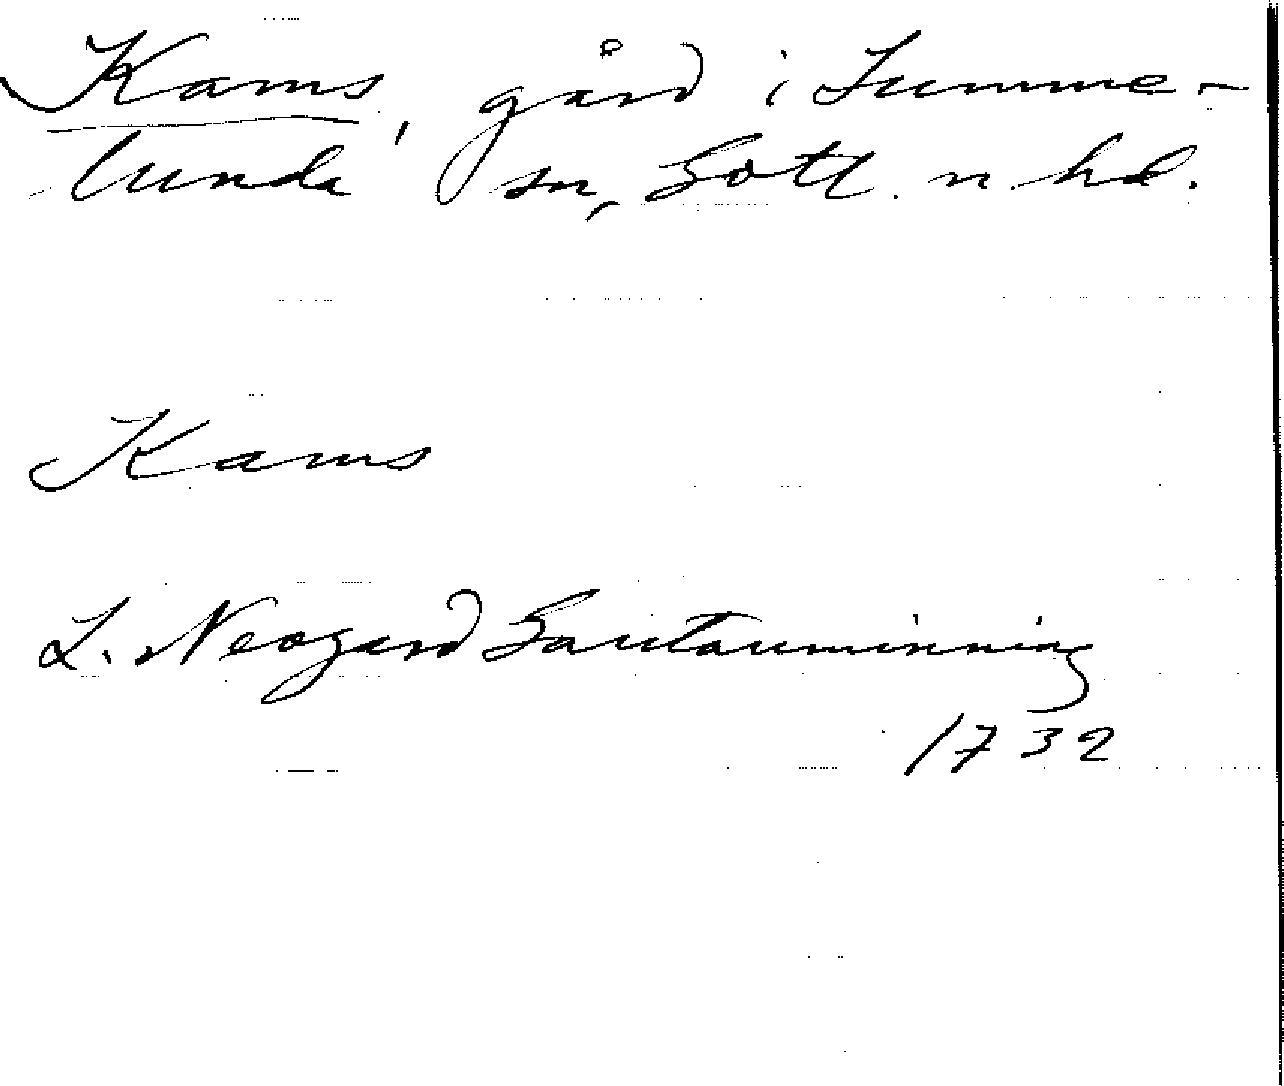 Kams, gård i Lumme-
lunda sn, Gotl. n. hd.
Kams
L. Neogard Gautauminning
1732